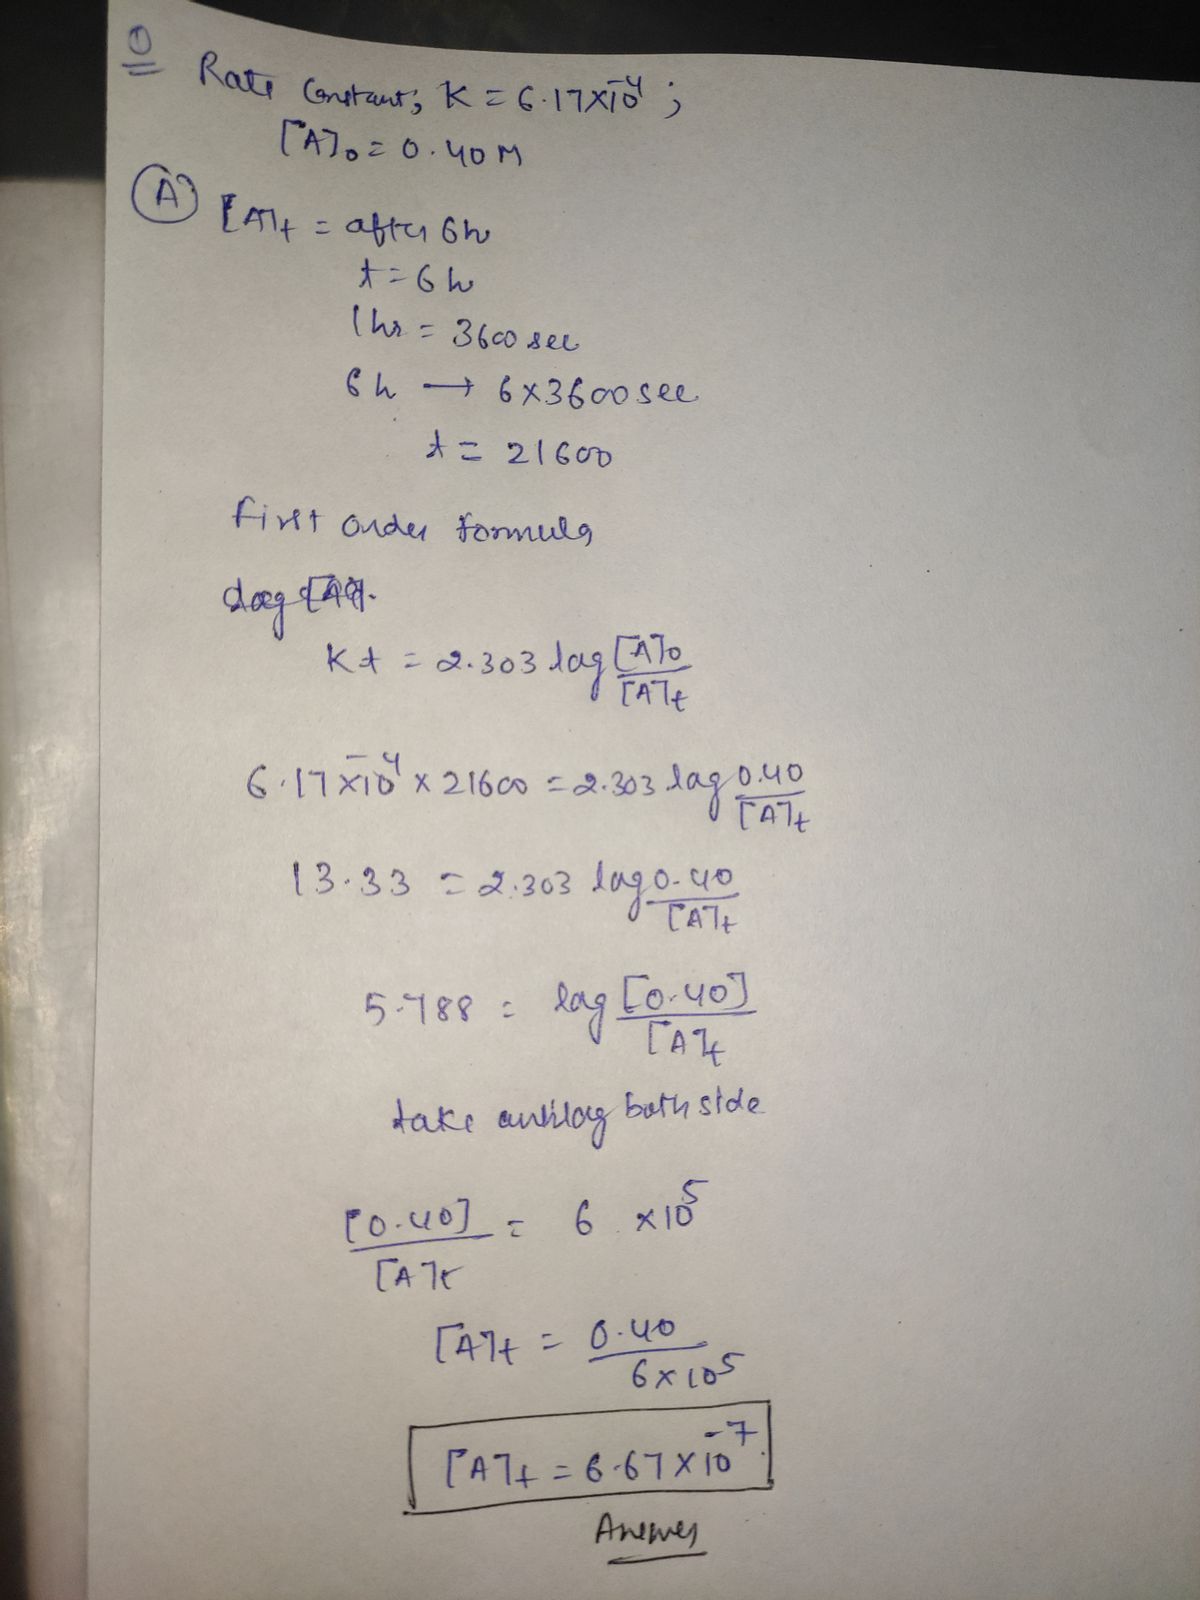 Q
Rate Constant, K = 6.17×10⁻⁴ ;
[A]₀ = 0.40 M
(A) [A]t = after 6h
t = 6 h
1 hr = 3600 sec
6 h → 6×3600 sec
t = 21600
first order formula
Kt = 2.303 log [A]₀/[A]t
6.17×10⁻⁴ × 21600 = 2.303 log 0.40/[A]t
13.33 = 2.303 log 0.40/[A]t
5.788 = log [0.40]/[A]t
take antilog both side
[0.40]/[A]t = 6 ×10⁵
[A]t = 0.40/6×10⁵
[A]t = 6.67×10⁻⁷
Answer